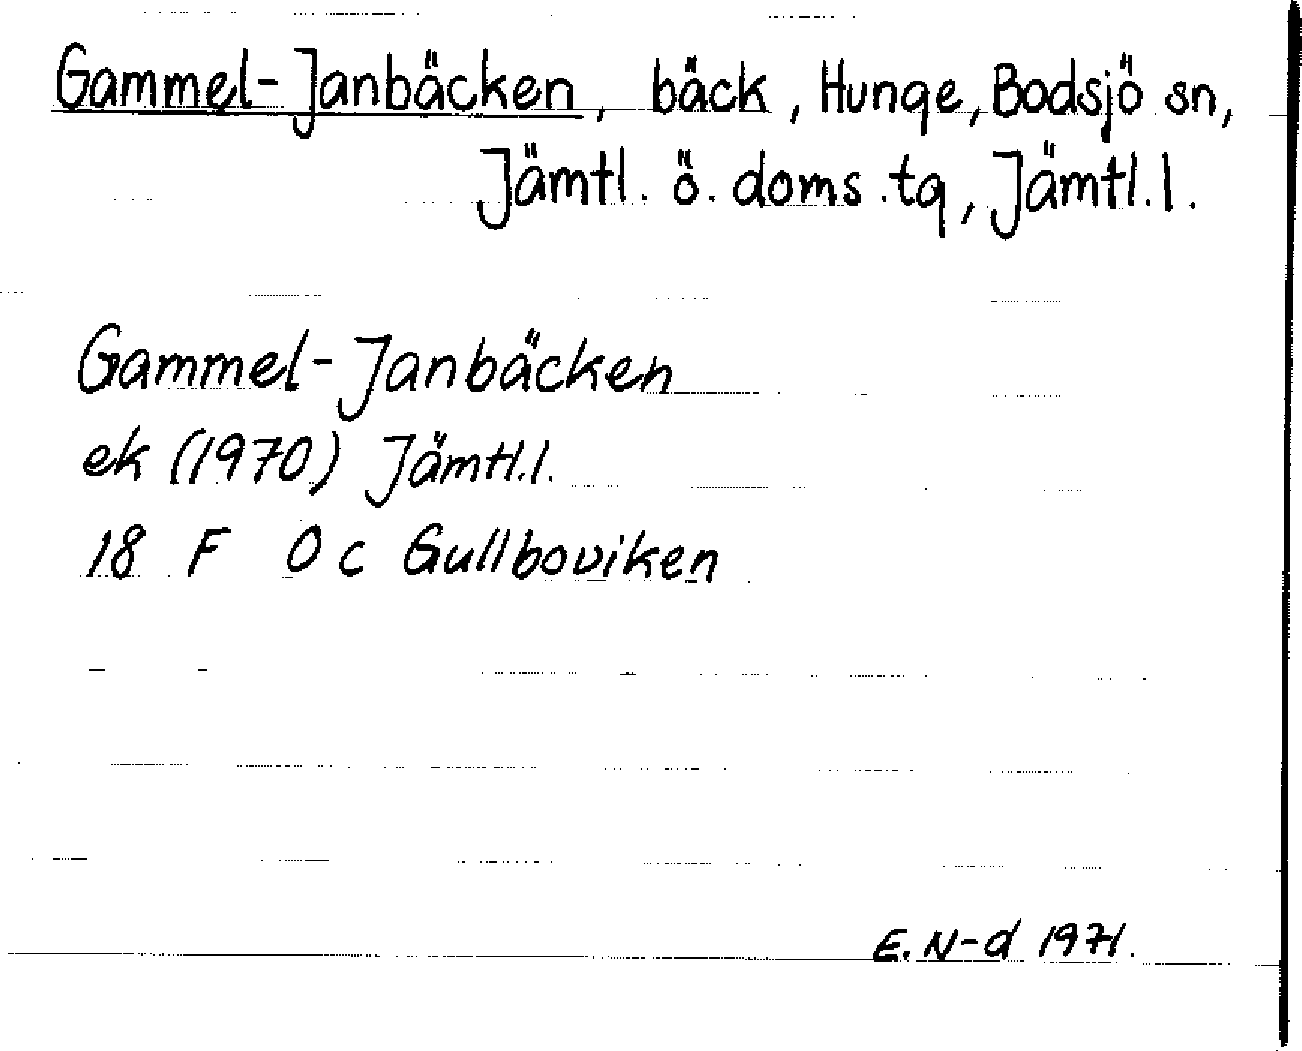 Gammel-Janbäcken, bäck, Hunge, Bodsjö sn,
Jämtl. ö. doms.tg, Jämtl.l.
Gammel-Janbäcken
ek (1970) Jämtl.l.
18 F 0 c Gullboviken
E. N-d 1971.